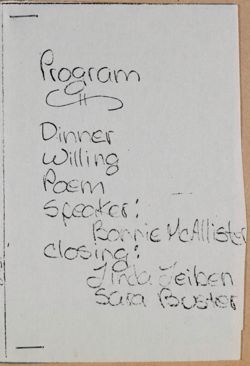 Program
Dinner
Willing
Poem
Speaker:
Bonnie McAllister
Closing:
Linda Leiben
Sara Buster